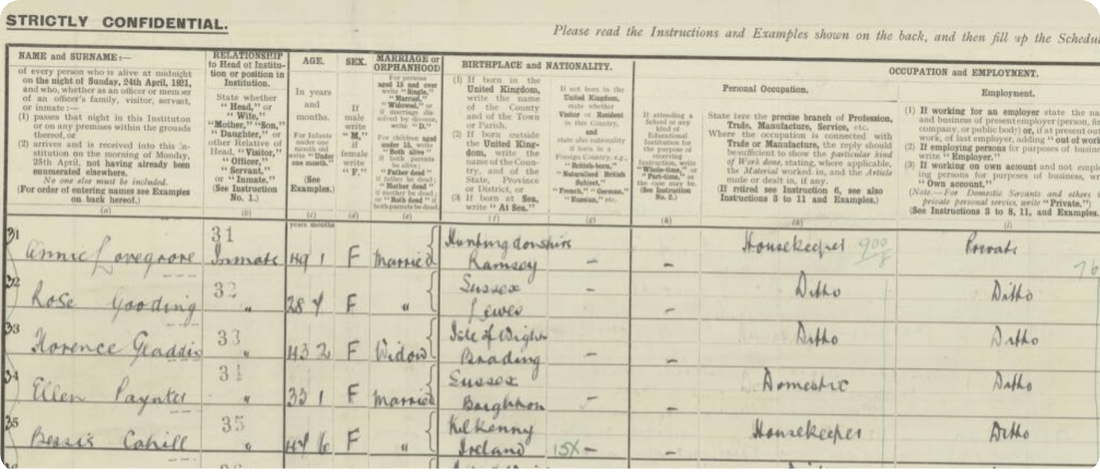 STRICTLY CONFIDENTIAL.
Please read the Instructions and Examples shown on the back, and then fill up the Schedu
NAME and SURNAME:—
of every person who is alive at midnight
on the night of Sunday, 24th April, 1921,
and who, whether as an officer or member
of an officer's family, visitor, servant,
or inmate:—
(1) passes that night in this Institution
or on any premises within the grounds
thereof, or
(2) arrives and is received into this In-
stitution on the morning of Monday,
25th April, not having already been
enumerated elsewhere.
No one else must be included.
(For order of entering names see Examples
on back hereof.)
(a)
RELATIONSHIP
to Head of Institu-
tion or position in
Institution.
State whether
"Head," or
"Wife,"
"Mother," "Son,"
"Daughter," or
other Relative of
Head, "Visitor,"
"Officer,"
"Servant,"
or "Inmate."
(See Instruction
No. 1.)
(b)
AGE.
In years
and
months.
For Infants
under one
month old
write "Under
one month."
(See
Examples.)
(c)
years months
SEX.
If
male
write
"M,"
if
female
write
"F."
(d)
MARRIAGE or
ORPHANHOOD
For persons
aged 15 and over
write "Single,"
"Married,"
"Widowed," or
if marriage dis-
solved by divorce,
write "D."
For children aged
under 15, write
"Both alive"
if both parents
be alive;
"Father dead"
if father be dead;
"Mother dead"
if mother be dead;
or "Both dead" if
both parents be dead.
(e)
BIRTHPLACE and NATIONALITY.
(1) If born in the
United Kingdom,
write the name
of the County
and of the Town
or Parish.
(2) If born outside
the United King-
dom, write the
name of the Coun-
try, and of the
State, Province
or District, or
(3) If born at Sea,
write "At Sea."
(f)
If not born in the
United Kingdom,
state whether
Visitor or Resident
in this Country,
and
state also nationality
if born in a
Foreign Country, e.g.,
"British-born,"
"Naturalised British
Subject,"
"French," "German,"
"Russian," etc.
(g)
If attending a
School or any
kind of
Educational
Institution for the
purpose of
receiving
Instruction, write
"Whole-time," or
"Part-time," as
the case may be.
(See Instruction
No. 2.)
(h)
OCCUPATION and EMPLOYMENT.
Personal Occupation.
State here the precise branch of Profession,
Trade, Manufacture, Service, etc.
Where the occupation is connected with
Trade or Manufacture, the reply should
be sufficient to show the particular kind
of Work done, stating, where applicable,
the Material worked in, and the Article
made or dealt in, if any.
(If retired see Instruction 6, see also
Instructions 3 to 11 and Examples.)
(k)
Employment.
(1) If working for an employer state the na
and business of present employer (person, fir
company, or public body) or, if at present out
work, of last employer, adding "out of work
(2) If employing persons for purposes of busine
write "Employer."
(3) If working on own account and not emplo
ing persons for purposes of business, wr
"Own account."
(Note.—For Domestic Servants and others i
private personal service, write "Private.")
(See Instructions 3 to 8, 11, and Examples.
(l)
31 Annie Lovegrove 31 Inmate 49 1 F Married Huntingdonshire Ramsey – – Housekeeper 900/8 Private
32 Rose Gooding 32 " 28 7 F " Sussex Lewes – – Ditto Ditto
33 Florence Gladdis 33 " 43 2 F Widow Isle of Wight Brading – – Ditto Ditto
34 Ellen Paynter 34 " 33 1 F Married Sussex Brighton – – Domestic Ditto
35 Bessie Cahill 35 " 47 6 F " Kilkenny Ireland 15X – – Housekeeper Ditto